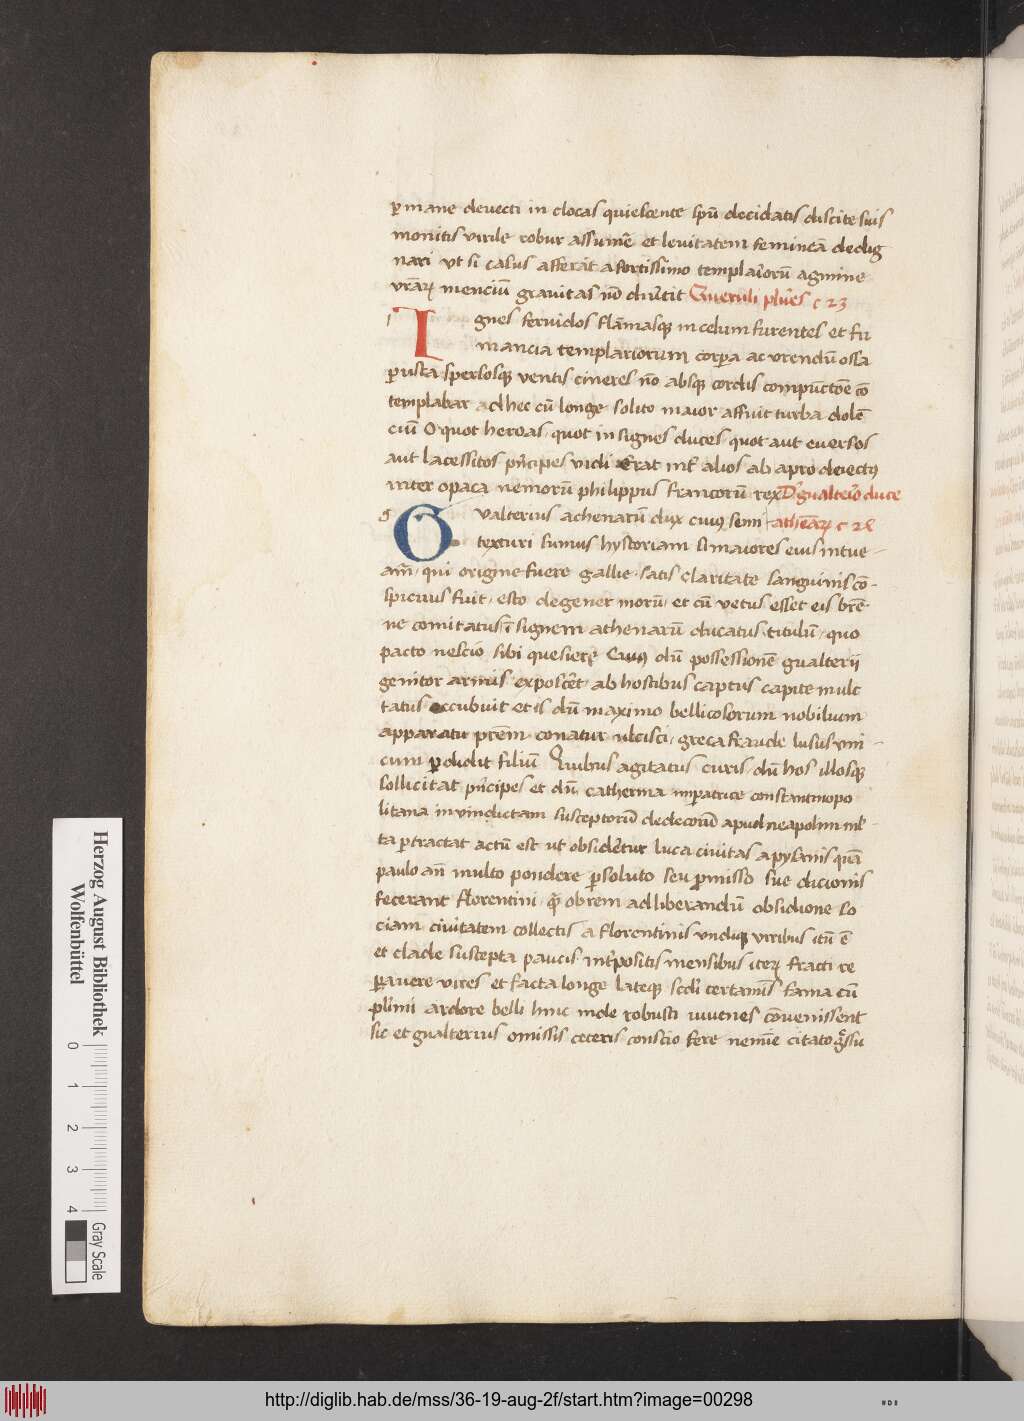 ꝑmane devecti in clocas quiescente spū decidatis discite suis
monitis virile robur assumē et levitatem femineā dedig
nari vt si casus afferat a fortissimo templaꝝioꝝū agmine
vr̄āꝝ menciū gravitas nō divtit Queruli plures c 23
Ignes fervidos flāmasqꝫ in celum furentes et fu
mancia templariorum corꝑa ac vrendū ossa
ꝑusta sperlosqꝫ ventis cineres nō absqꝫ cordis compūctōe cō
templabar ad hec cū longe solito maior affuit turba dolē
ciū O quot heroas quot insignes duces quot aut eversos
aut lacessitos pͥncipes vidi Erat int̄ alios ab apro deiectꝯ
inter opaca nemorū philippus francorū rex D' gualterio duce
Gvalterius athenarū dux cuiꝯ semi athēaꝝ c 24
texturi sumus hystoriam si maiores eius intue
am̄ qui origine fuere gallie satis claritate sanguinis cō
spicuus fuit esto degener morū et cū vetus esset eis brē
ne comitatus īsignem athenarū ducatus titulū quo
pacto nescio sibi quesierē Cuiꝯ dū possessionē gualterij
genitor armis exposcēt ab hostibus captus capite mulc
tatus occubuit et is dū maximo bellicosorum nobilium
apparatu prēm conatur ulcisci greca fraude lusus vni
cum ꝑdidit filiū Quibus agitatus curis dū hos illosqꝫ
sollicitat pͥncipes et dū catherina imꝑatrice constantinopo
litana in vindictam susceptorū dedecorū apud neapolim ml̄
ta ꝑtractat actū est ut obsideretur luca civitas a pysanis quā
paulo añ multo pondere ꝑsoluto seu ꝓmisso sue dicionis
fecerant florentini qr̄ ob rem ad liberandū obsidione so
ciam civitatem collectis a florentinis vndiqꝫ viribus itū ē
et clade suscepta paucis intͥpositis mensibus iterꝫ fracti re
ꝑavere vires et facta longe lateqꝫ scdi certamīs fama cū
plͥmi ardore belli hinc inde robusti iuvenes cōvenissent
sic et gualterius omissis ceteris conscio fere nemīe citato gͣssu
Herzog August Bibliothek
Wolfenbüttel
0 1 2 3 4
Gray Scale
http://diglib.hab.de/mss/36-19-aug-2f/start.htm?image=00298